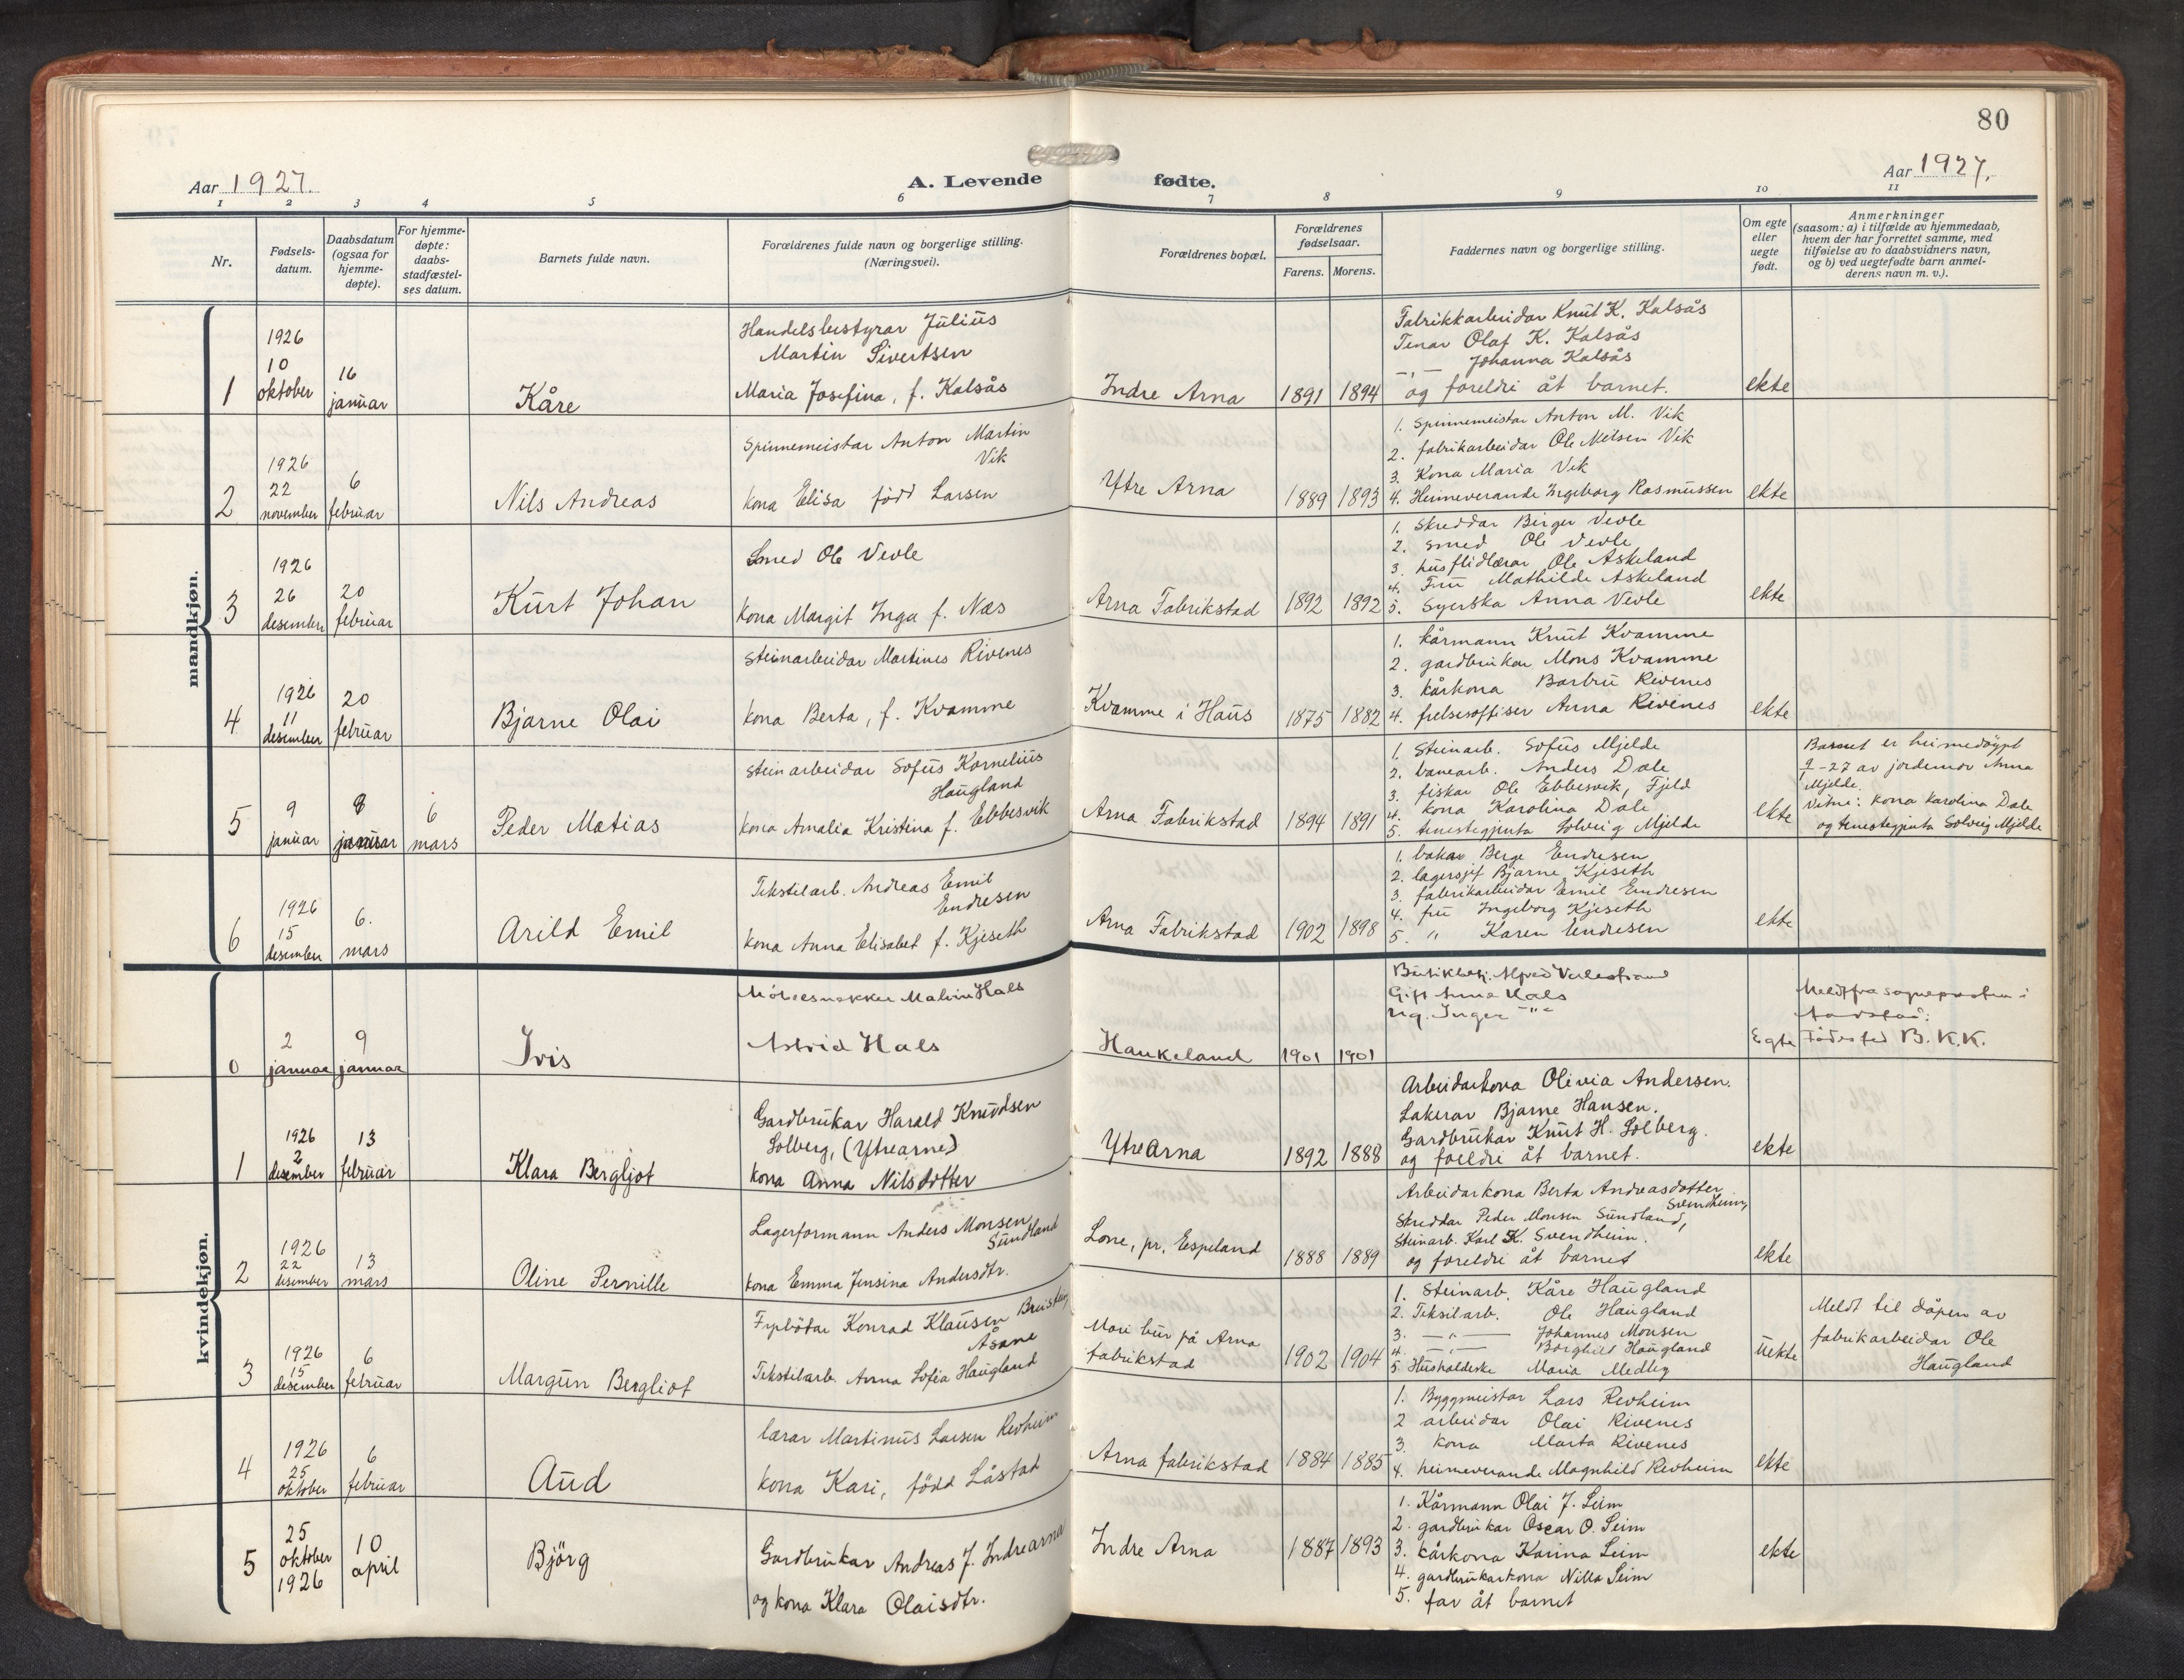 80
Aar 1927.
A. Levende fødte.
Aar 1927.
1 2 3 4 5 6 7 8 9 10 11
Nr.
Fødsels-
datum.
Daabsdatum
(ogsaa for
hjemme-
døpte).
For hjemme-
døpte:
daabs-
stadfæstel-
ses datum.
Barnets fulde navn.
Forældrenes fulde navn og borgerlige stilling.
(Næringsvei).
Forældrenes bopæl.
Forældrenes
fødselsaar.
Farens. Morens.
Faddernes navn og borgerlige stilling.
Om egte
eller
uegte
født.
Anmerkninger
(saasom: a) i tilfælde av hjemmedaab,
hvem der har forrettet samme, med
tilføielse av to daabsvidners navn,
og b) ved uegtefødte barn anmel-
derens navn m. v.).
mandkjøn.
1
1926
10
oktober
16
januar
Kåre
Handelsbestyrar Julius
Martin Sivertsen
Maria Josefina, f. Kalsås
Indre Arna
1891 1894
Fabrikkarbeidar Knut K. Kalsås
Tenar Olaf K. Kalsås
—„— Johanna Kalsås
og foreldri åt barnet.
ekte
2
1926
22
november
6
februar
Nils Andreas
Spinnemeistar Anton Martin
Vik
kona Elisa född Larsen
Ytre Arna
1889 1893
1. Spinnemeistar Anton M. Vik
2. fabrikarbeidar Ole Nilsen Vik
3. Kona Maria Vik
4. Heimeverande Ingeborg Rasmussen
ekte
3
1926
26
desember
20
februar
Kurt Johan
Smed Ole Vevle
kona Margit Inga f. Næs
Arna Fabrikstad
1892 1892
1. Skreddar Birger Vevle
2. smed Ole Vevle
3. husflidlærar Ole Askeland
4. Fru Mathilde Askeland
5. Syerska Anna Vevle
ekte
4
1926
11
desember
20
februar
Bjarne Olai
Steinarbeidar Martines Rivenes
kona Berta, f. Kvamme
Kvamme i Haus
1875 1882
1. kårmann Knut Kvamme
2. gardbrukar Mons Kvamme
3. kårkona Barbru Rivenes
4. frelsesoffiser Anna Rivenes
ekte
5
9
januar
8
januar
6
mars
Peder Matias
Steinarbeidar Sofus Kornelius
Haugland
kona Amalia Kristina f. Ebbesvik
Arna Fabrikstad
1894 1891
1. Steinarb. Sofus Mjelde
2. banearb. Anders Dale
3. fiskar Ole Ebbesvik, Fjeld
4. kona Karolina Dale
5. tenestegjenta Solveig Mjelde
ekte
Barnet er heimedöypt
9/1-27 av jordemor Anna
Mjelde.
Vitne: kona Karolina Dale
og tenestegjenta Solveig Mjelde
6
1926
15
desember
6.
mars
Arild Emil
Tekstilarb. Andreas Emil
Endresen
kona Anna Elisabet f. Kjeseth
Arna Fabrikstad
1902 1898
1. bakar Berge Endresen
2. lagersjef Bjarne Kjeseth
3. fabrikarbeidar Emil Endresen
4. fru Ingeborg Kjeseth
5. „ Karen Endresen
ekte
kvindekjøn.
0
2
januar
9
januar
Iris
Möbelsnekker Malvin Hals
Astrid Hals
Haukeland
1901 1901
Butikbetj. Alfred
Gift Anna Hals
Ug. Inger —„—
Egte
Meldt fra sognepresten i
Födested B.K.K.
1
1926
2
desember
13
februar
Klara Bergljot
Gardbrukar Harald Knudsen
Solberg, (Ytrearne)
kona Anna Nilsdotter
Ytre Arna
1892 1888
Arbeidarkona Olivia Andersen.
Lakerar Bjarne Hansen.
Gardbrukar Knut H. Solberg.
og foreldri åt barnet.
ekte
2
1926
22
desember
13
mars
Oline Pernille
Lagerformann Anders Monsen
Sundland
kona Emma Jensina Andersdtr.
Lone, pr. Espeland
1888 1889
Arbeidarkona Berta Andreasdotter
Svendheim,
Skreddar Peder Monsen Sundland,
Steinarb. Karl K. Svendheim.
og foreldri åt barnet
ekte
3
1926
15
desember
6
februar
Margun Bergliot
Fyrbötar Konrad Klausen
Åsane
Tekstilarb. Anna Sofia Haugland
Mori bur på Arna
fabrikstad
1902 1904
1. Steinarb. Kåre Haugland
2. Teksilarb. Ole Haugland
3. —„— Johannes Monsen
4. —„— Borghild Haugland
5. Husholderske Maria Medlig
uekte
Meldt til dåpen av
fabrikarbeidar Ole
Haugland
4
1926
25
oktober
6
februar
Aud
lærar Martinus Larsen Revheim
kona Kari, född Låstad
Arna fabrikstad
1884 1885
1. Byggmeistar Lars Revheim
2 arbeidar Olai Rivenes
3. kona Marta Rivenes
4. heimeverande Magnhild Revheim
ekte
5
25
oktober
1926
10
april
Björg
Gardbrukar Andreas J. Indrearna
og kona Klara Olaisdtr.
Indre Arna
1887 1893
1. Kårmann Olai J. Seim
2. gardbrukar Oscar O. Seim
3. kårkona Karina Seim
4. gardbrukarkona Nilla Seim
5. far åt barnet
ekte